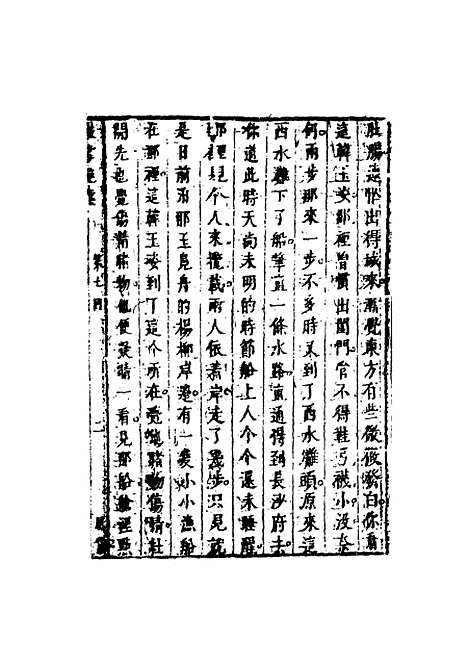 肚腸遠怕出得城來漸覺東方有些微微發白你看
這韓玉姿那裡曾慣出閨門管不得鞋弓襪小沒奈
何兩步那來一步不多時來到了西水灘頭原來這
西水灘下了船筆直一條水路直通得到長沙府去
你道此時天尚未明的時節船上人个个還未睡醒
那裡見个人來攬載兩人依着岸走了幾步只見就
是日前泊那玉凫舟的楊柳岸邊有一隻小小漁船
在那裡這韓玉姿到了這个所在覺覩物傷情杜
開先也覺傷情睹物便熒睛一看見那船艙裡點
第七回
二